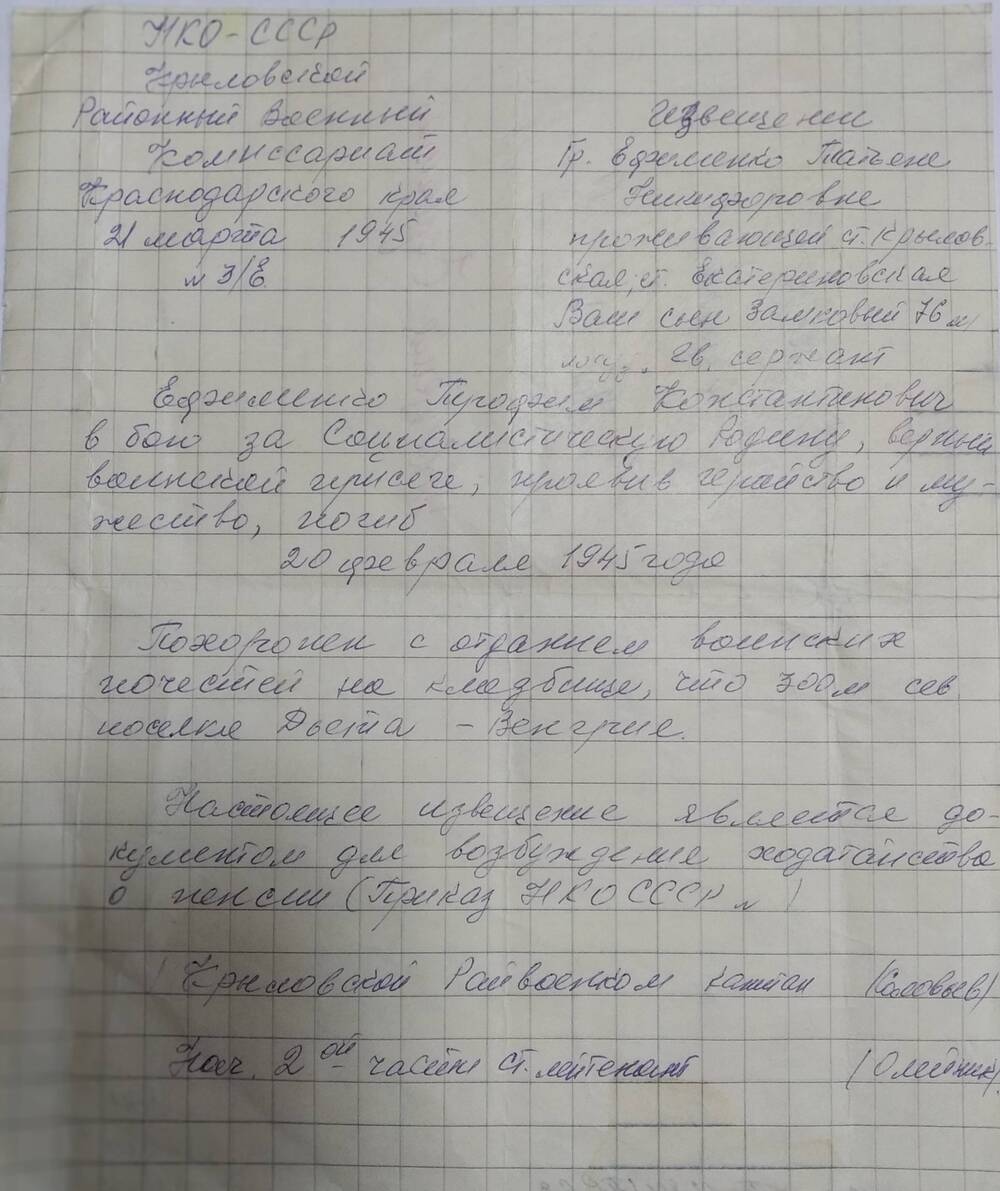 НКО-СССР
Крыловской
Районный Военный
Комиссариат
Краснодарского края
21 марта 1945
№ 3/Е
Извещении
Гр. Ефименко Татьене
Никифоровне
проживающей ст. Крылов-
ская, ст. Екатериновская
Ваш сын Замковый 76 м/м
гв. сержант
Ефименко Трофим Константинович
в бою за Социалистическую Родину, верный
воинской присяге, проявив геройство и му-
жество, погиб
20 февраля 1945 года
Похоронен с отданием воинских
почестей на кладбище, что 700 м сев.
поселка Дьета - Венгрия.
Настоящее извещение является до-
кументом для возбуждения ходатайства
о пенсии (Приказ НКО СССР № )
Крыловской Райвоенком капитан (Соловьев)
Нач. 2ой части ст. лейтенант (Олейник).